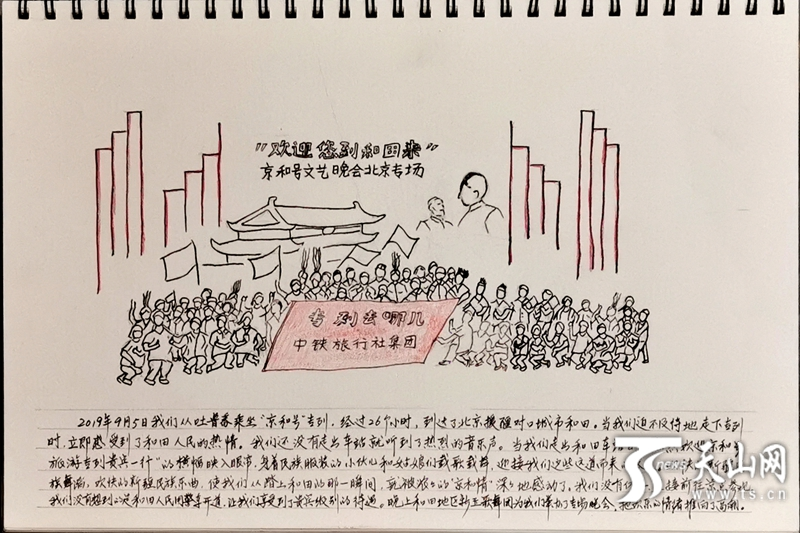 "欢迎您到和田来"
京和号文艺晚会北京专场
专列去哪儿
中铁旅行社集团
2019年9月5日我们从吐鲁番乘坐"京和号"专列,经过26个小时,到达了北京援疆对口城市和田。当我们迫不及待地走下专列
时,立即感受到了和田人民的热情。我们还没有走出车站就听到了热烈的音乐声。当我们走出和田车站
旅游专列贵宾一行"的横幅映入眼帘,穿着民族服装的小伙儿和姑娘们载歌载舞,迎接我们这些远道而来
族舞蹈,欢快的新疆民族乐曲,使我们从踏上和田的那一瞬间,就被浓浓的"京和情"深深地感动了。我们没有
我们没有想到的是和田人民用警车开道,让我们享受到了贵宾级别的待遇。晚上和田地区新玉歌舞团为我们举办了专场晚会,把欢乐的情绪推向了高潮。
天山网
www.ts.cn